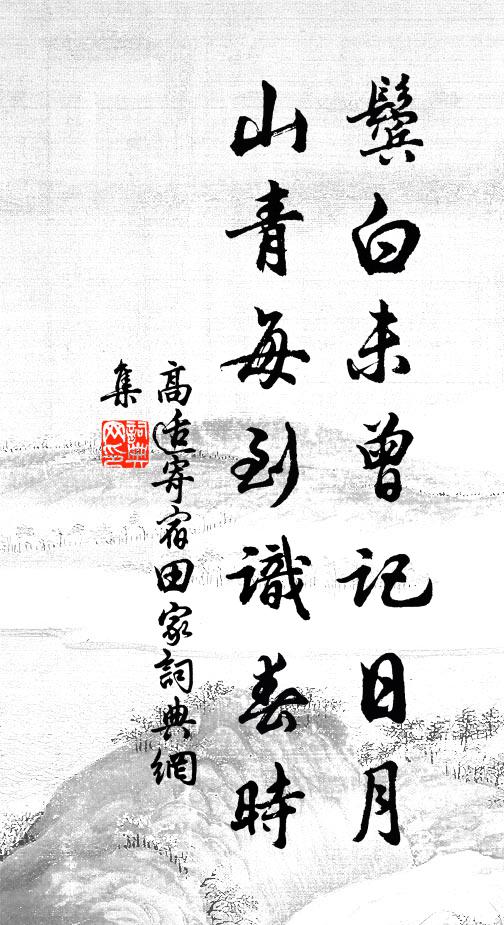 鬓白未曾记日月
山青每到識春時
高适寄宿田家詞典網
集